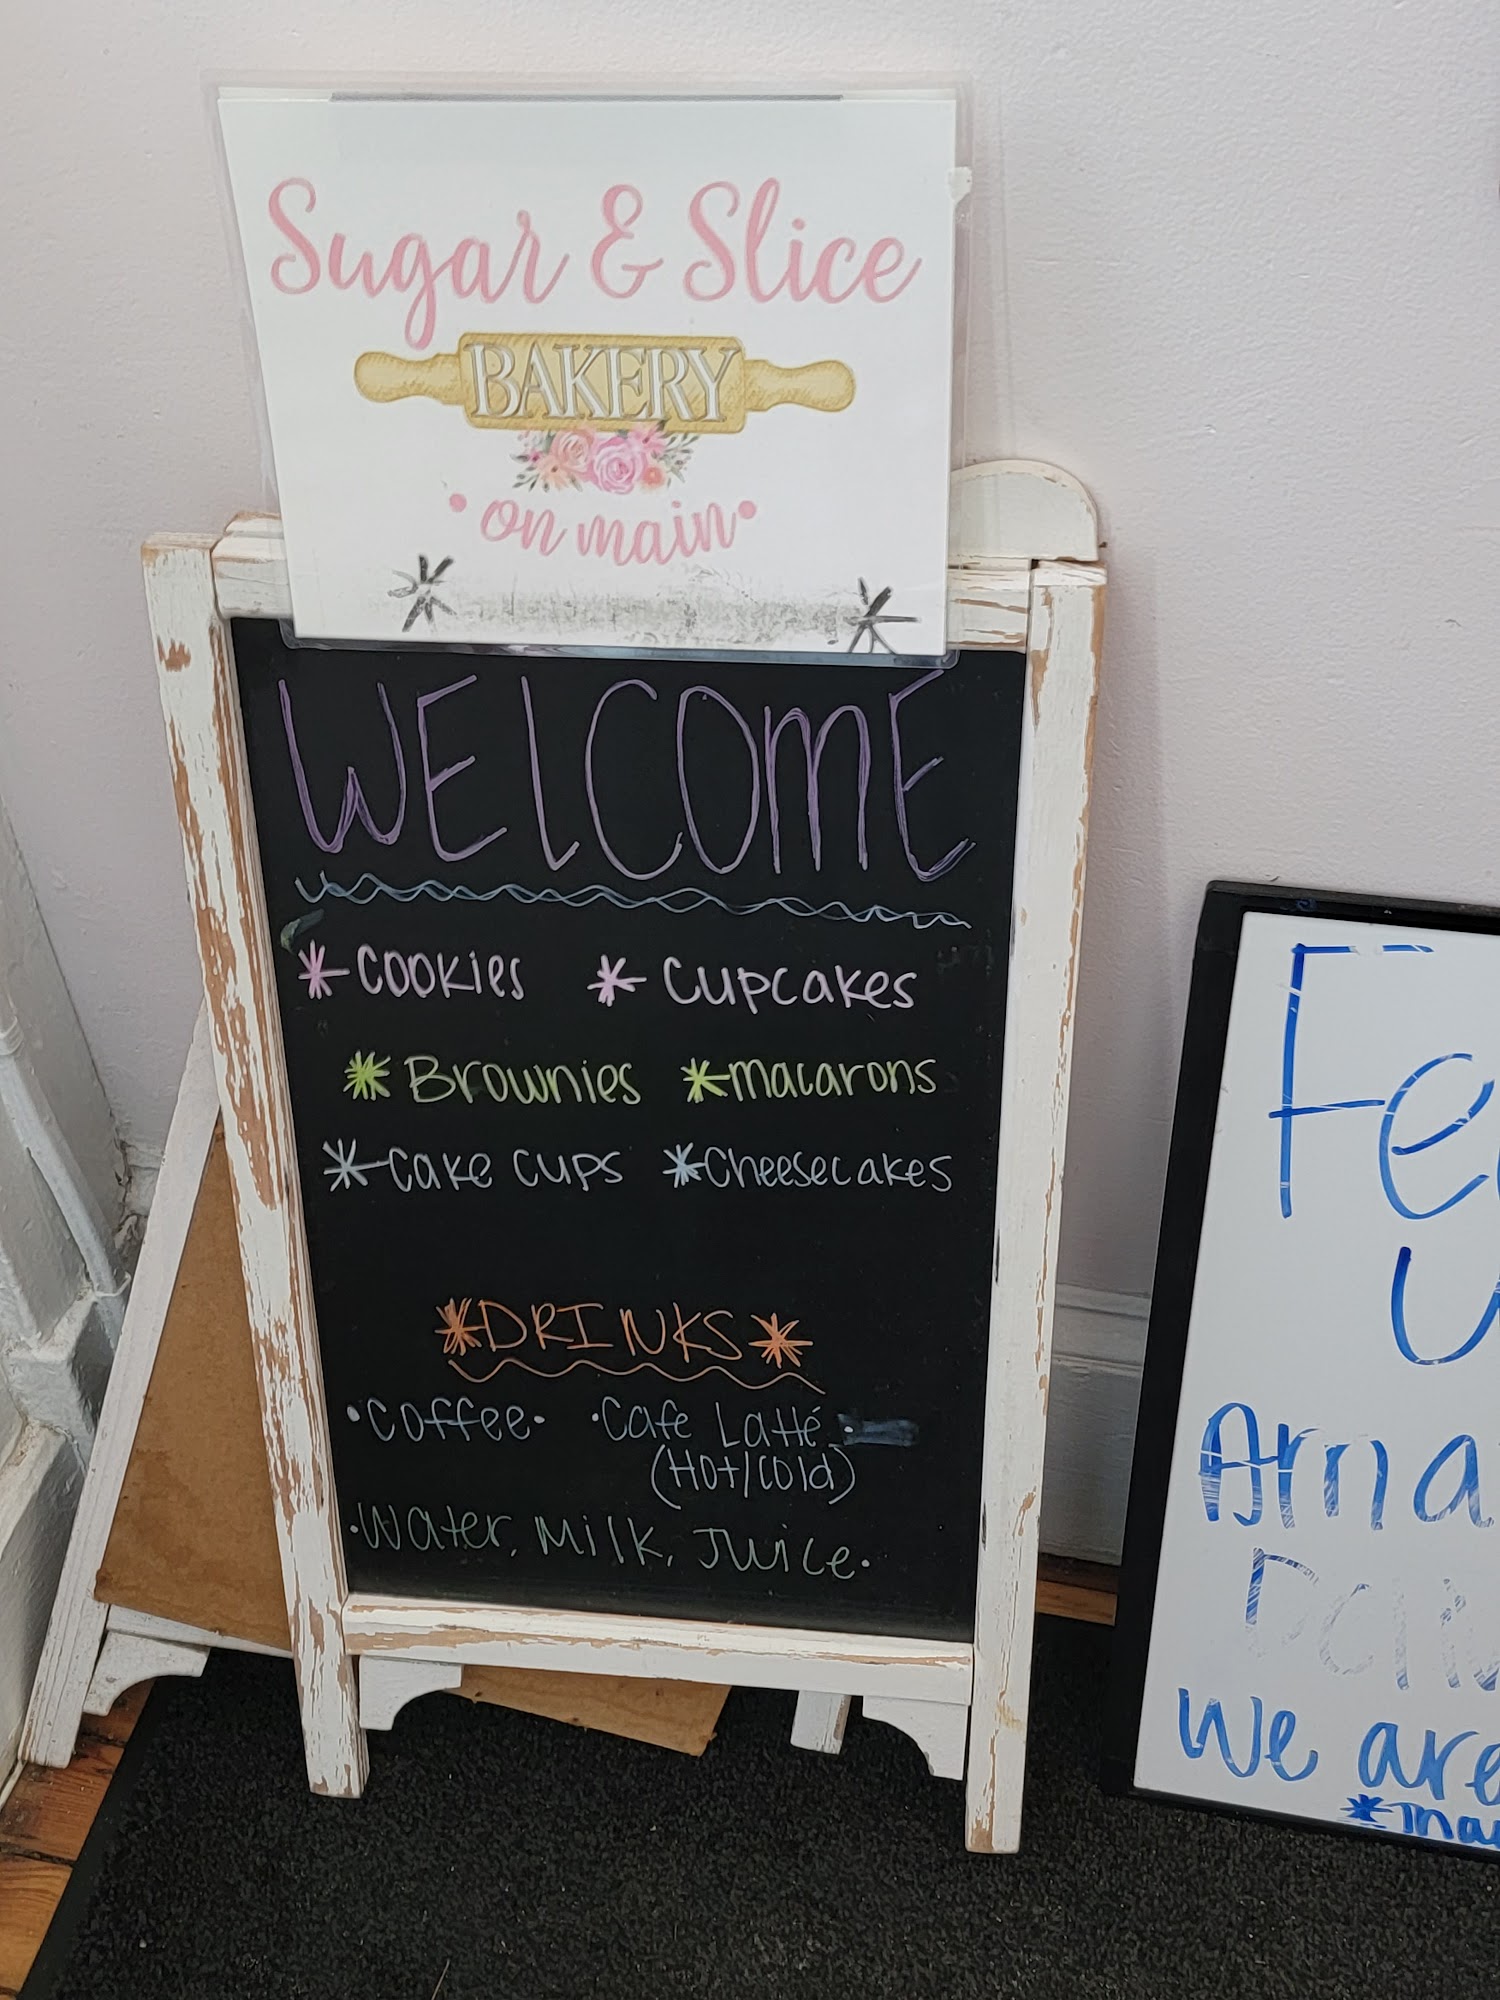 Sugar & Slice
BAKERY
• on main •
WELCOME
* COOKIES * CUPCAKES
* BROWNIES * macarons
* CAKE CUPS * CHEESECAKES
*DRINKS*
• Coffee • • Cafe Latté •
(Hot/Cold)
• Water, Milk, Juice •
We are